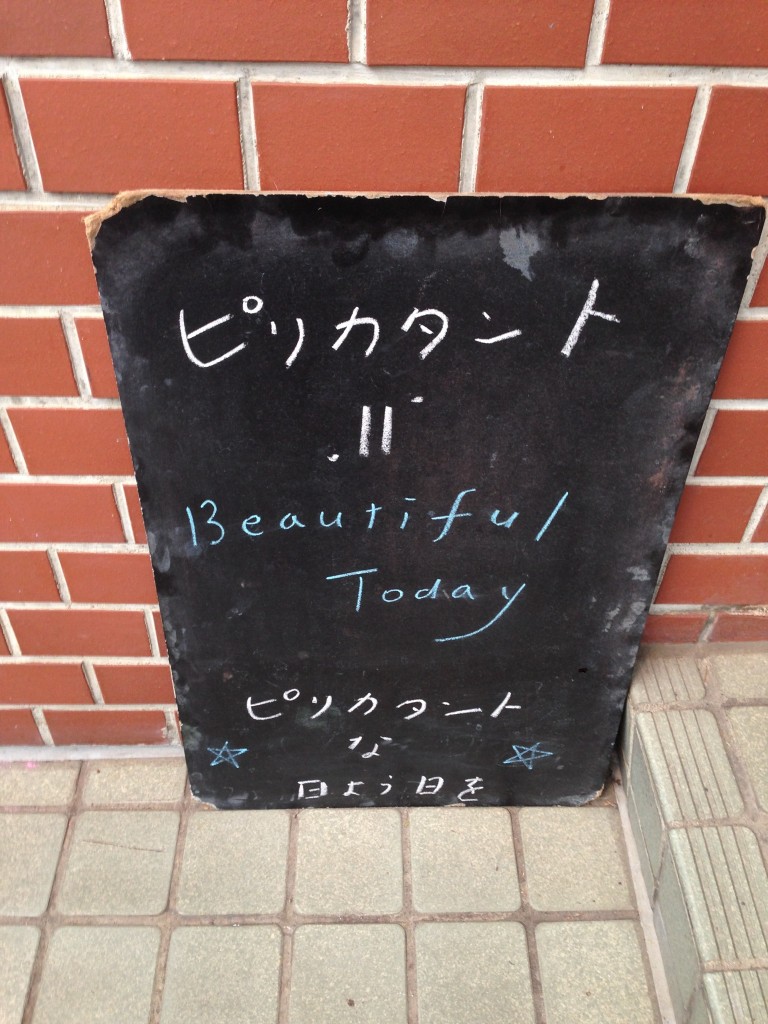 ピリカタント
॥
Beautiful
Today
ピリカタント
な
日よう日を